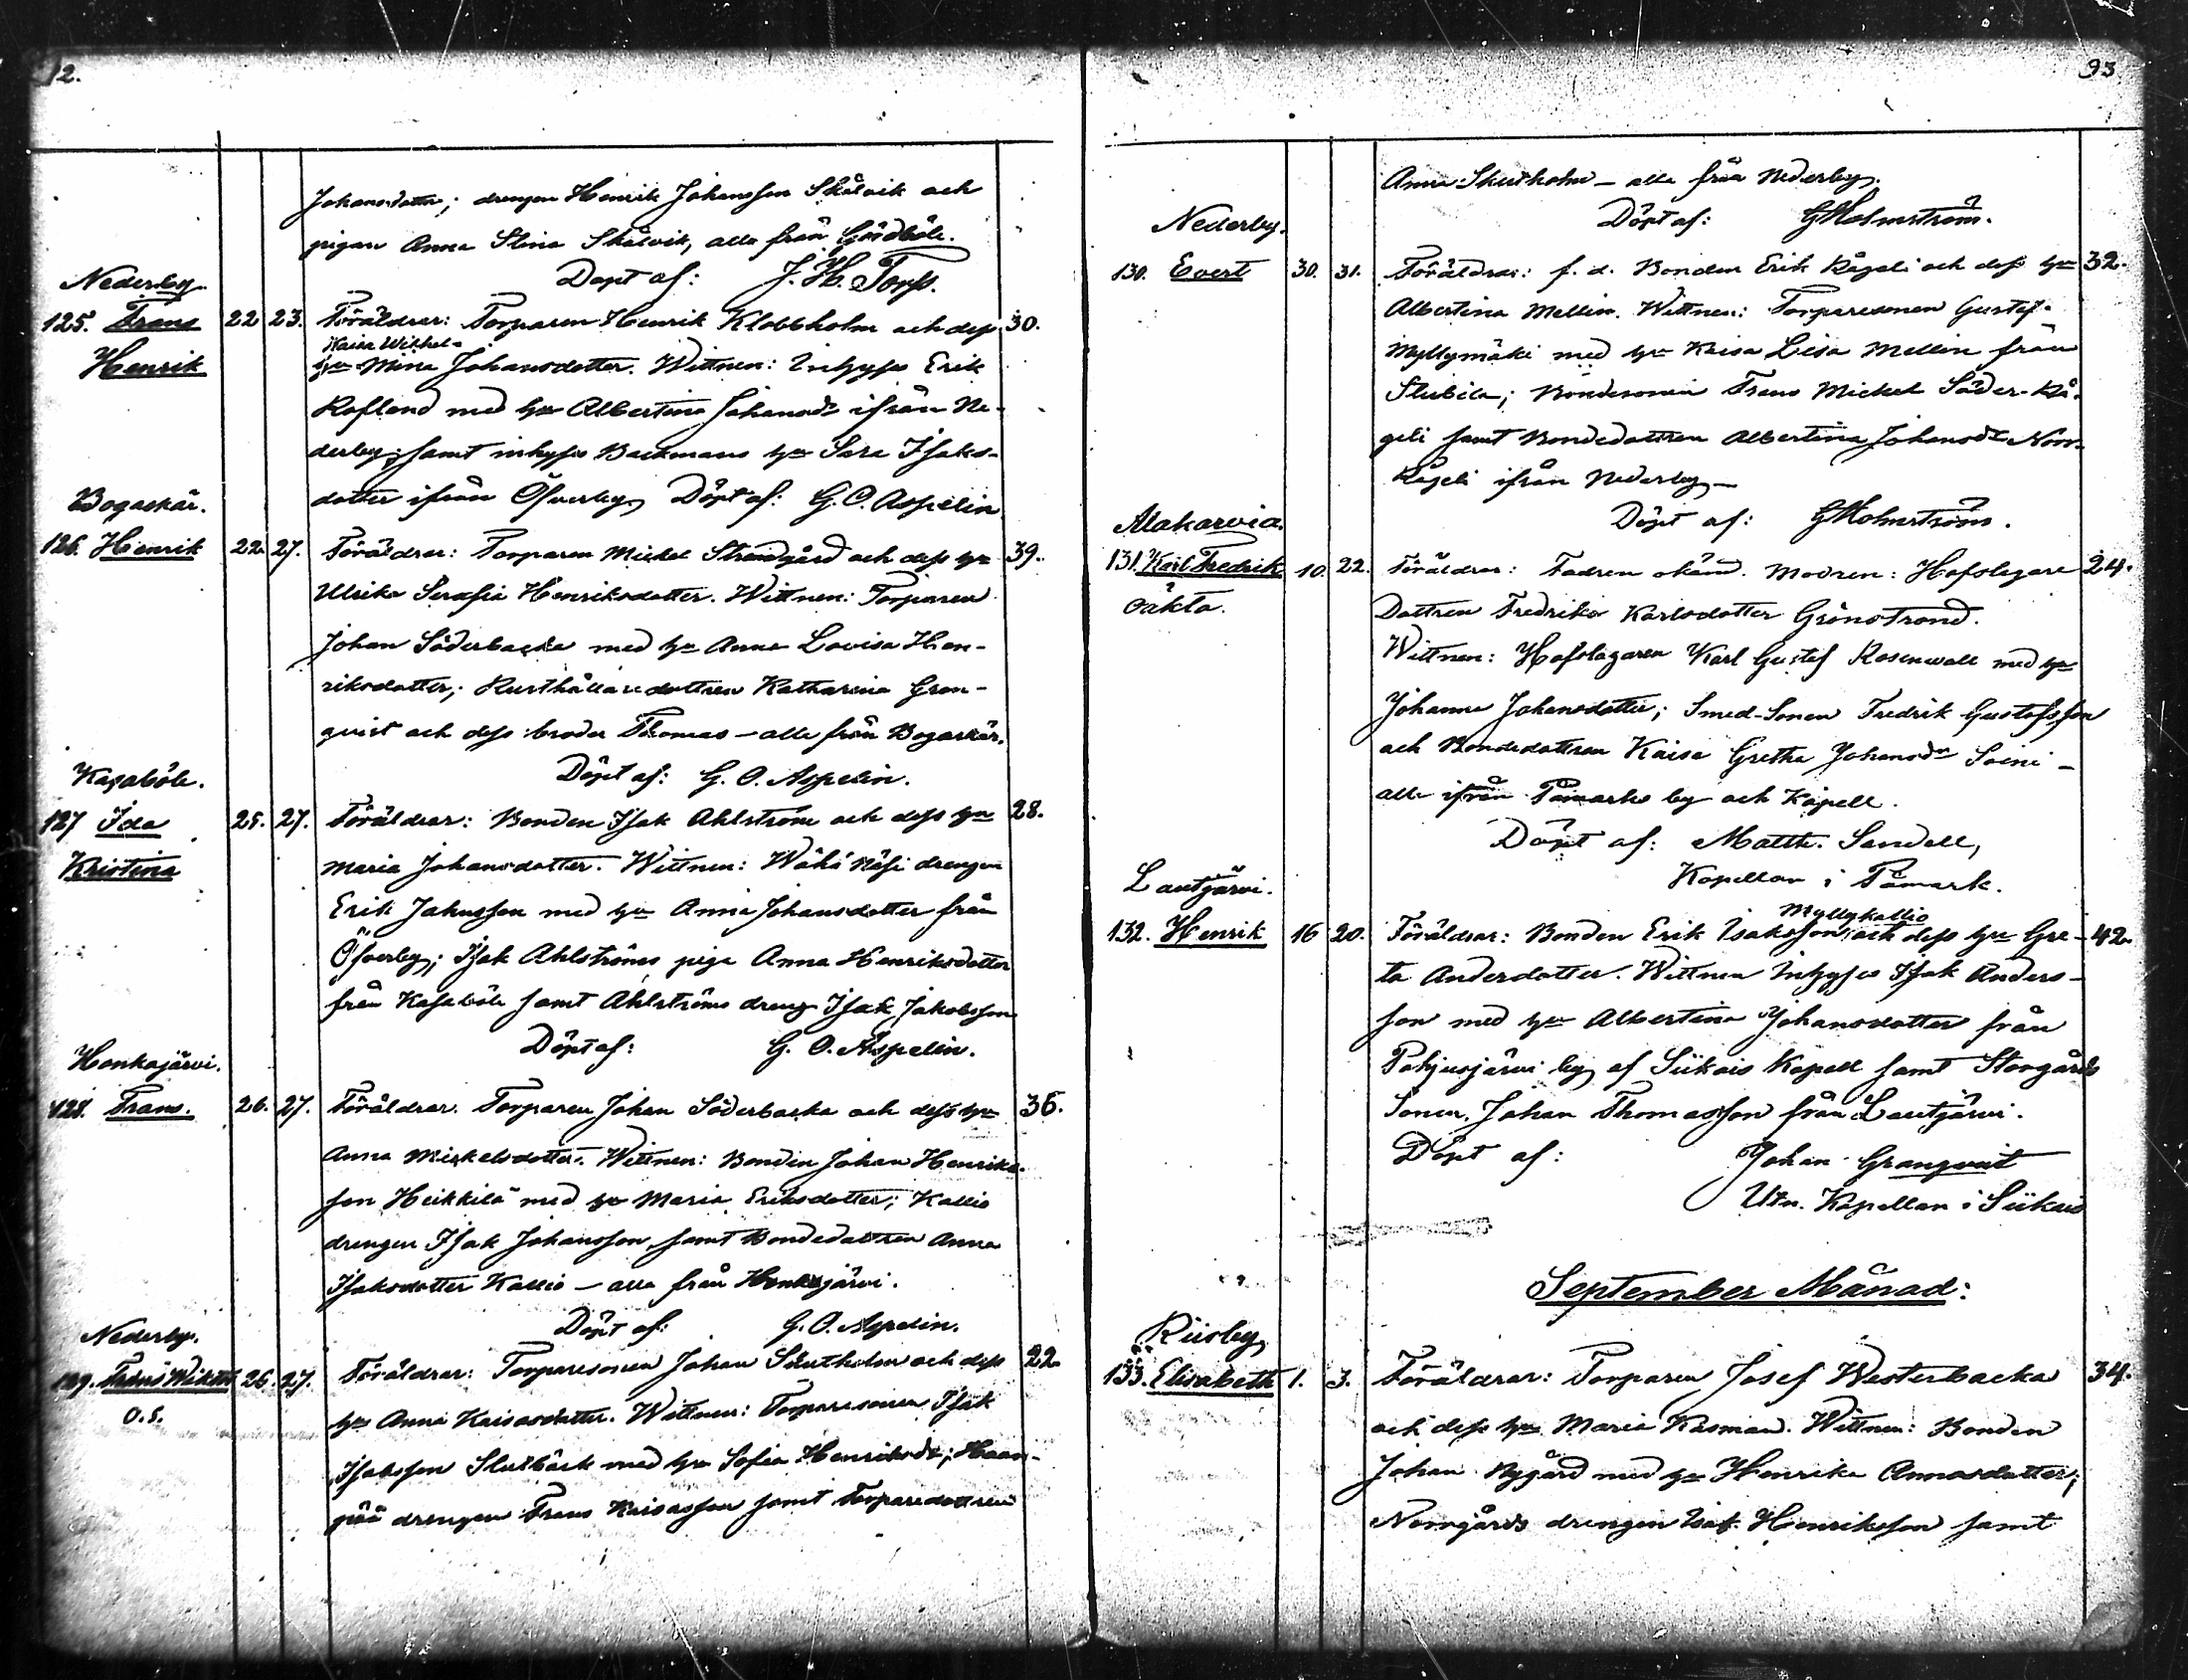 92.
Johansdotter; drengen Henrik Johansson Skålvik och
pigan Anna Stina Skålvik, alla från Gårdböle.
Döpt af: J. H. Torp.
Nederby.
125. Frans 22 23. Föräldrar: Torparen Henrik Klobbholm och dess 30.
Kaisa Wilhel-
Henrik hu Mina Johansdotter. Wittnen: Inhyses Erik
Rosland med hu Albertina Johansdr ifrån Ne-
derby; samt inhyses Backmans hu Sara Isaks-
dotter ifrån Öfverby. Döpt af: G. O. Aspelin
Bogaskär.
126. Henrik 22. 27. Föräldrar: Torparen Mickel Strandgård och dess hu 39.
Ulrika Serafia Henriksdotter. Wittnen: Torparen
Johan Söderbacka med hu Anna Lovisa Hen-
riksdotter; Rusthållaredottren Katharina Gran-
qvist och dess broder Thomas – alla från Bogaskär.
Döpt af: G. O. Aspelin.
Kasaböle.
127 Ida 25. 27. Föräldrar: Bonden Isak Ahlström och dess hu 28.
Kristina Maria Johansdotter. Wittnen: Wähä Näsi drengen
Erik Johansson med hu Anna Johansdotter från
Öfverby; Isak Ahlströms piga Anna Henriksdotter
från Kasaböle samt Ahlströms dreng Isak Jakobsson
Döpt af: G. O. Aspelin.
Honkajärvi.
128. Frans. 26. 27. Föräldrar. Torparen Johan Söderbacka och dess hu 36.
Anna Mickelsdotter. Wittnen: Bonden Johan Henriks-
son Heikkilä med hu Maria Eriksdotter; Kallio
drengen Isak Johansson samt Bondedottren Anna
Isaksdotter Kallio – alla från Honkajärvi.
Döpt af: G. O. Aspelin.
Nederby.
129. Frans Wiktor 26. 27. Föräldrar: Torparesonen Johan Skutholm och dess 22.
o.ä. hu Anna Kaisasdotter. Wittnen: Torparesonen Isak
Isaksson Slutbäck med hu Sofia Henriksdr; Haan-
pää drengen Frans Kaisasson samt Torparedottren
93
Anna Skutholm – alla från Nederby.
Döpt af: GHolmström.
Nederby.
130. Evert 30. 31. Föräldrar: f. d. Bonden Erik Rågeli och dess hu 32.
Albertina Mellin. Wittnen: Torparesonen Gustaf
Myllymäki med hu Kaisa Lisa Mellin från
Stubila; Bondesonen Frans Mickel Söder-Rå-
geli samt Bondedottren Albertina Johansdr Norr-
Rågeli ifrån Nederby –
Döpt af: GHolmström.
Alakarvia.
131. Karl Fredrik 10. 22. Föräldrar: Fadren okänd. Modren: Hofslagare 24.
oäkta. Dottren Fredrika Karlsdotter Grönstrand.
Wittnen: Hofslagaren Karl Gustaf Rosenwall med hu
Johanna Johansdotter; Smed-Sonen Fredrik Gustafsson
och Bondedottren Kaisa Gretha Johansdr Soini –
alla ifrån Påmarks by och Kapell.
Döpt af: Matth. Sandell,
Kapellan i Påmark.
Lautjärvi.
Myllykallio
132. Henrik 16 20. Föräldrar: Bonden Erik Isaksson och dess hu Gre- 42.
ta Andersdotter. Wittnen Inhyses Isak Anders-
son med hu Albertina Johansdotter från
Pohjusjärvi by af Siikais Kapell samt Storgårds
Sonen Johan Thomasson från Lautjärvi.
Döpt af: Johan Granqvist
Utn. Kapellan i Siikais
September Månad:
Riisby
133. Elisabeth 1. 3. Föräldrar: Torparen Josef Westerbacka 34.
och dess hu Maria Kasman. Wittnen: Bonden
Johan Nygård med hu Henrika Annasdotter;
Norrgårds drengen Isak Henriksson samt